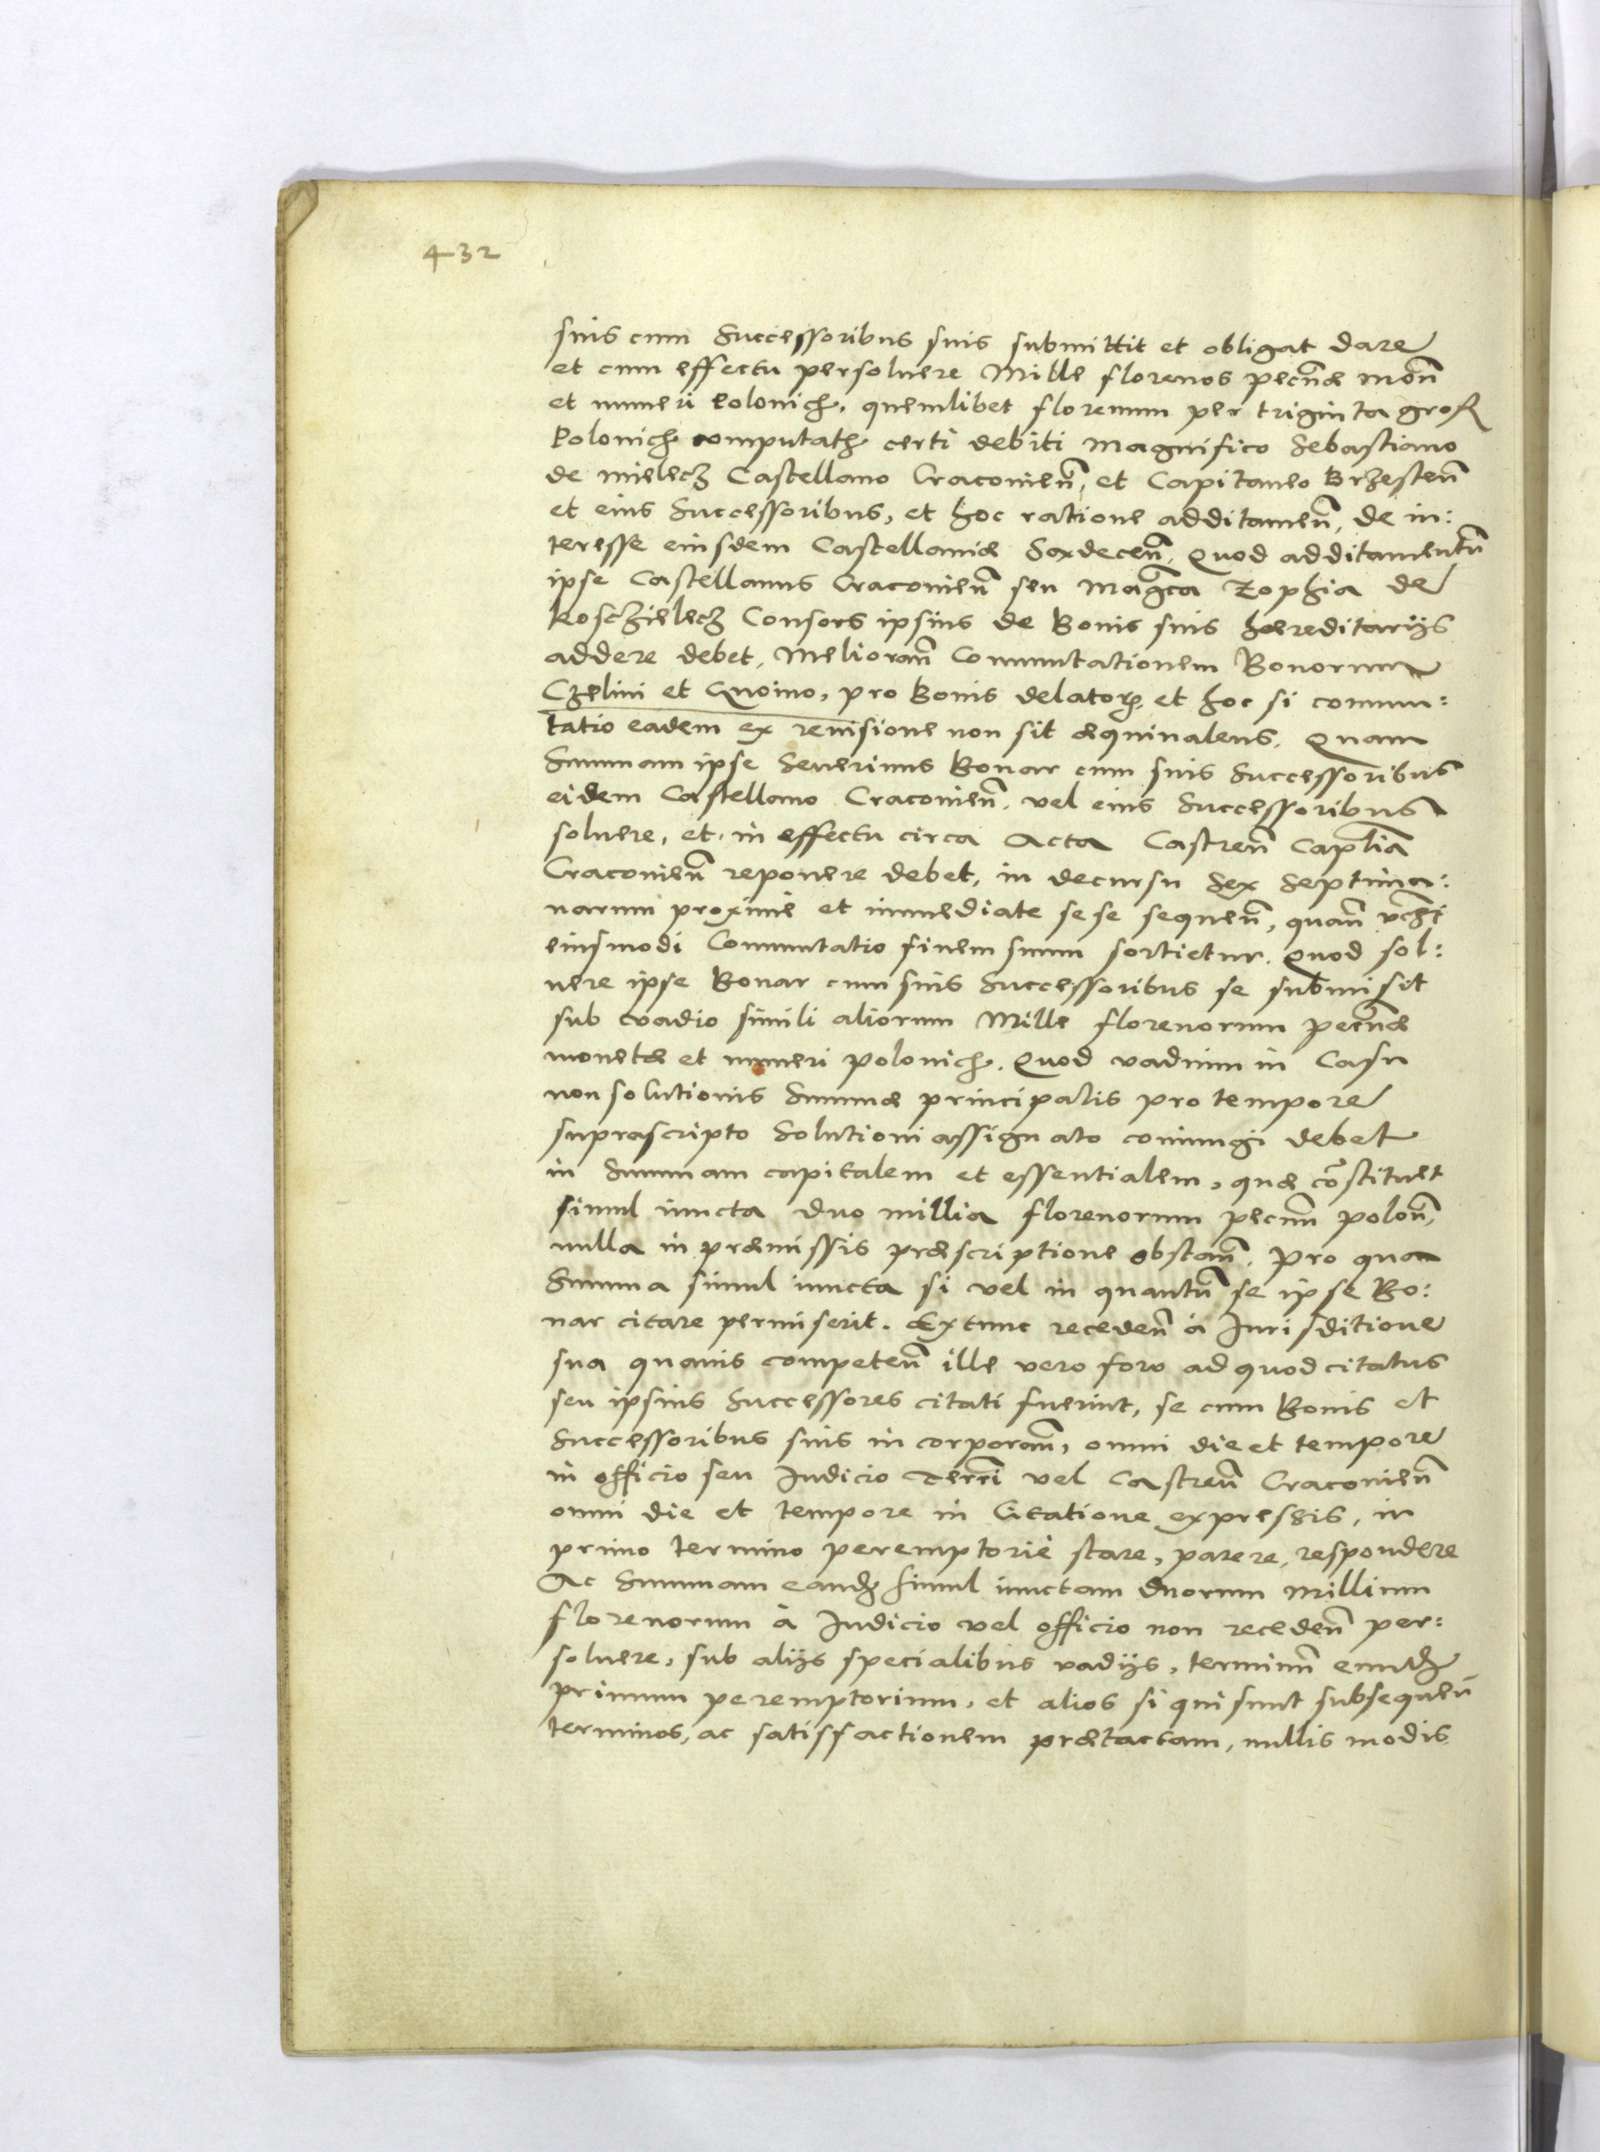 432
suis cum Successoribus suis submittit et obligat dare
et cum effectu persoluere Mille florenos pecūæ Monē
et numeri Polonicȝ, quemlibet florenum per triginta gross
Polonicȝ computatȝ certi debiti Magnifico Sebastiano
de Mielecȝ Castellano Craconieñ, et Capitaneo Brzesteñ
et eius Successoribus, et hoc ratione additameñ, de in:
teresse eiusdem Castellaniæ Saxdeceñ. Quod additamentū
ipse Castellanus Cracouieñ seu Magca Zophia de
Koscȝielecȝ Consors ipsius de Bonis suis hæreditarijs
addere debet, Melioram̄ Commutationem Bonorum
Czelini et Gnoino, pro Bonis delatorȝ et hoc si commu:
tatio eadem ex reuisione non sit æquiualens. Quam
Summam ipse Seuerinus Bonar cum suis Successoribus
eidem Castellano Cracouieñ, vel eius Successoribus
soluere, et in effectu circa Acta Castreñ Capltia
Cracouieñ reponere debet, in decursu Sex Septima:
narum proxime et immediate sese sequeñ, quam
eiusmodi Commutatio finem suum sortietur. Quod sol:
uere ipse Bonar cum suis Successoribus se submisit
sub vadio simili aliorum Mille florenorum pecūæ
monetæ et numeri polonicȝ. Quod vadium in Casu
non solutionis Summæ principalis pro tempore
suprascripto Solutioni assignato coniungi debet
in Summam capitalem et essentialem, quæ cōstituet
simul iuncta duo millia florenorum pecuñ poloñ,
nulla in præmissis præscriptione obstañ. Pro qua
Summa simul iuncta si vel in quantū se ipse Bo:
nar citare permiserit. Extunc recedeñ à Jurisditione
sua quauis competeñ ille vero foro ad quod citatus
seu ipsius Successores citati fuerint, se cum Bonis et
Successoribus suis incorporañ, omni die et tempore
in officio seu Judicio Terrī vel Castreñ Cracouieñ
omni die et tempore in Citatione expressis, in
primo termino peremptoriè stare, parere, respondere
Ac Summam eandȝ simul iunctam duorum Millium
florenorum à Judicio vel officio non recedeñ per:
soluere, sub alijs specialibus vadijs, terminū eundȝ
primum peremptorium, et alios si qui sunt subsequeñ
terminos, ac satisfactionem prætactam, nullis modis